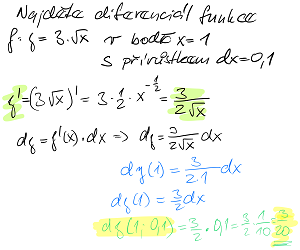 Najděte diferenciál funkce
f: y = 3·√x v bodě x=1
s přírůstkem dx=0,1
y' = (3√x)' = 3·1/2·x^(-1/2) = 3/(2√x)
dy = f'(x)·dx => dy = 3/(2√x) dx
dy(1) = 3/(2·1) dx
dy(1) = 3/2 dx
dy(1; 0,1) = 3/2·0,1 = 3/2·1/10 = 3/20